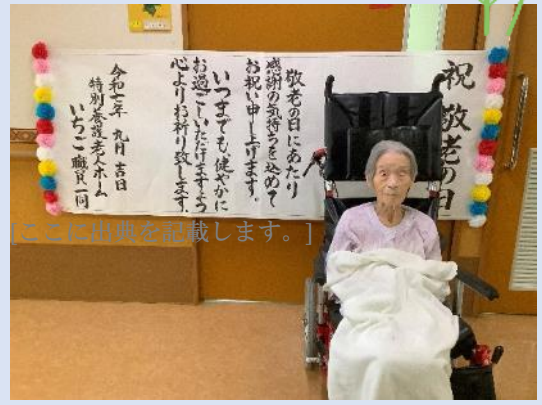 祝 敬老の日
敬老の日にあたり
感謝の気持ちを込めて
お祝い申し上げます。
いつまでも健やかに
お過ごしいただけますよう
心よりお祈り致します。
令和七年 九月 吉日
特別養護老人ホーム
いちご 職員一同
[ここに出典を記載します。]